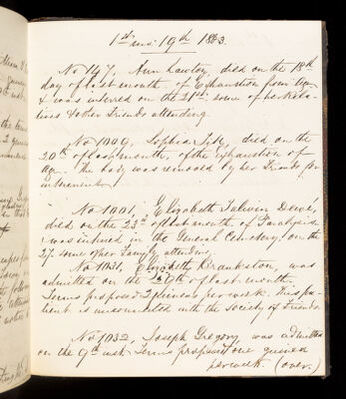 1st mo: 19th 1863.
No 747, Ann Lawton, died on the 18th
day of last month, of Exhaustion from Age
& was interred on the 21st; some of her Rela-
tives & other Friends attending
No 1009, Sophia died on the
20th of last month, of the exhaustion of
Age. The body was removed by her Friends for
interment.
No 1001, Elizabeth Dowd,
died on the 23rd of last month of Paralysis
& was interred in the General Cemetery, on the
27 some of her Family attending.
No 1031, Elizabeth Crankston, was
admitted on the 29th of last month.
Terms proposed 2 guineas per week. This pa-
tient is unconnected with the Society of Friends
No 1032, Joseph Gregory, was admitted
on the 9th inst. Terms proposed one guinea
per week. (over.)